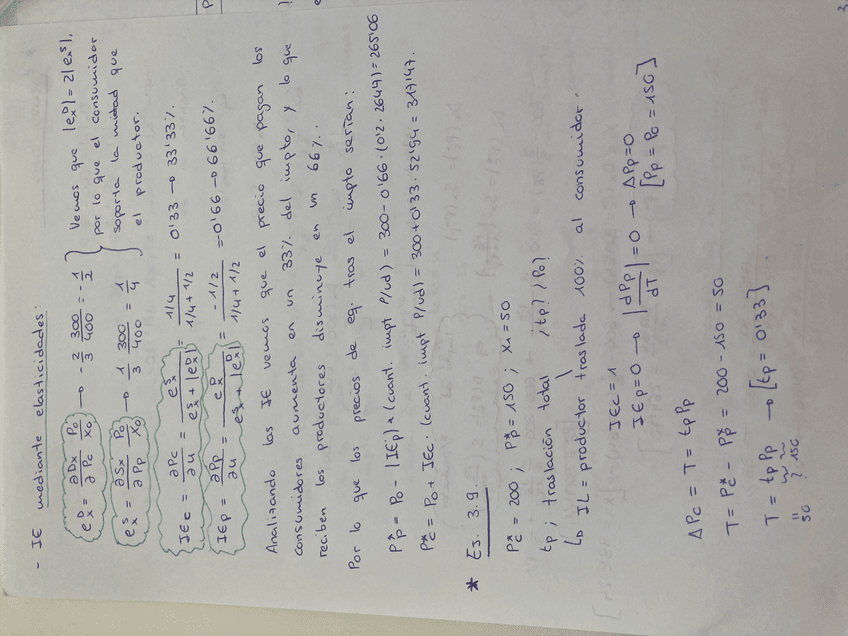 - IE mediante elasticidades:
e_x^D = ∂Dx/∂Pc P0/X0 → -2/3 300/400 = -1/2 } Vemos que |e_x^D| = 2|e_x^s|,
por lo que el consumidor
e_x^s = ∂Sx/∂Pp P0/X0 → 1/3 300/400 = 1/4 } soporta la mitad que
el productor.
IEc = ∂Pc/∂u = e_x^s/(e_x^s + |e_x^D|) = (1/4)/(1/4 + 1/2) = 0'33 → 33'33%.
IEp = ∂Pp/∂u = e_x^D/(e_x^s + |e_x^D|) = (-1/2)/(1/4 + 1/2) = 0'66 → 66'66%.
Analizando las IE vemos que el precio que pagan los
consumidores aumenta en un 33% del impto, y lo que
reciben los productores disminuye en un 66%.
Por lo que los precios de eq. tras el impto serían:
Pp* = P0 - |IEp| * (cuant. impt P/ud) = 300 - 0'66 · (0'2 · 264'7) = 265'06
Pc* = P0 + IEc · (cuant. impt P/ud) = 300 + 0'33 · 52'94 = 317'47.
* Ej. 3.9
Pc* = 200 ; Pp* = 150 ; X1 = 50
tp ; traslación total ¿tp? ¿P0?
↳ IL = productor traslada 100% al consumidor.
IEc = 1
IEp = 0 → |dPp/dT| = 0 → ΔPp = 0
[Pp = P0 = 150]
ΔPc = T = tp Pp
T = Pc* - Pp* = 200 - 150 = 50
T = tp Pp → [tp = 0'33]
50 ? 150